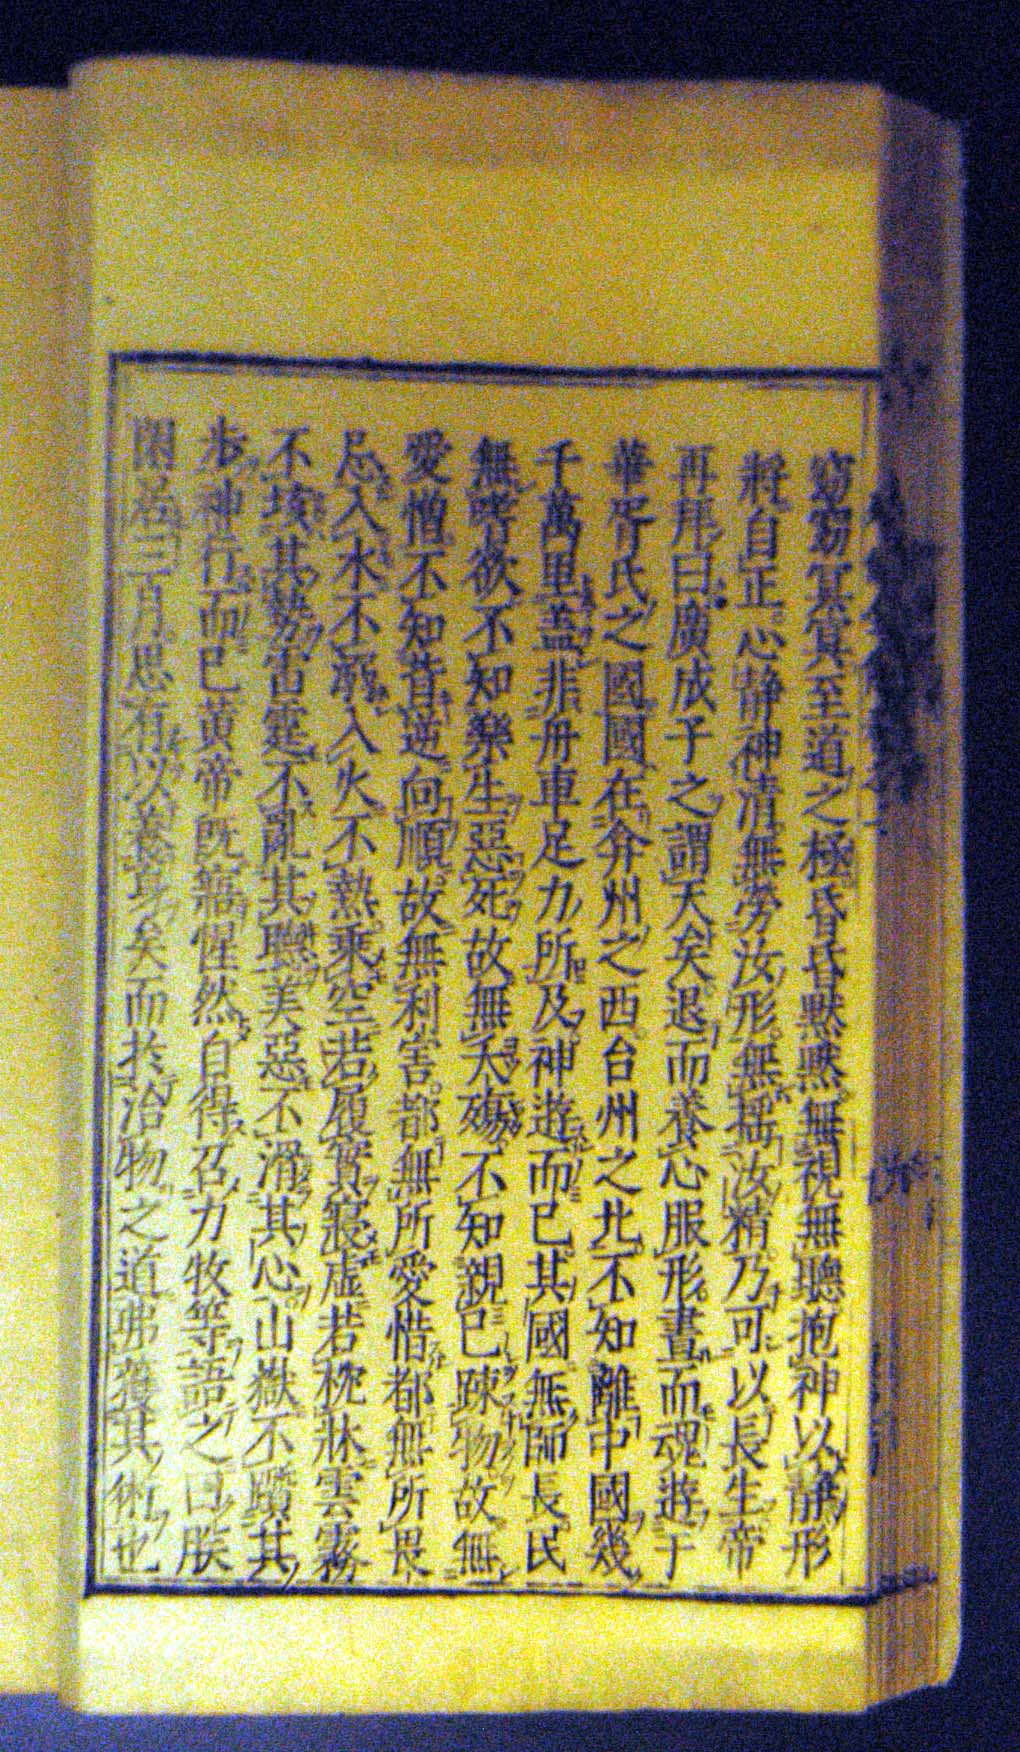 窈窈冥冥至道之極昏昏默默無視無聽抱神以靜形
將自正心靜神清無勞汝形無揺汝精乃可以長生帝
再拜曰廣成子之謂天矣退而養心服形晝而魂遊于
華胥氏之國國在弇州之西台州之北不知離中國幾
千萬里蓋非舟車足力所及神遊而已其國無師長民
無嗜欲不知樂生惡死故無夭殤不知親已踈物故無
愛憎不知背逆向順故無利害都無所愛惜都無所畏
忌入水不溺入火不熱乘空若履實寝虚若枕牀雲霧
不其雷霆不亂其聽美惡不滑其心山嶽不躓其
步神行而已黄帝既寤惺然自得召力牧等語之曰朕
閑居三月思有以養其矣而於治物之道弗獲其術也